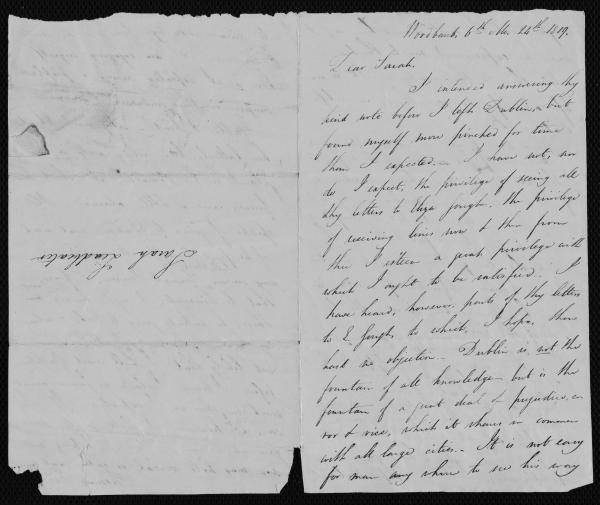 Woodbank 6th Mo. 24th 1819.
Dear Sarah,
I intended answering thy
kind note before I left Dublin, but
found myself more pinched for time
than I expected. — I have not, nor
do I expect, the privilege of seeing all
thy letters to Eliza Gough. The privilege
of receiving lines now & then from
thee I esteem a great privilege with
which I ought to be satisfied. I
have heard, however, parts of thy letters
to E. Gough, to which, I hope, thou
hast no objection. Dublin is not the
fountain of all knowledge — but is the
fountain of a great deal of prejudice, er-
ror & vice, which it shares in common
with all large cities. — It is not easy
for man any where to see his way
Sarah Leadbeater